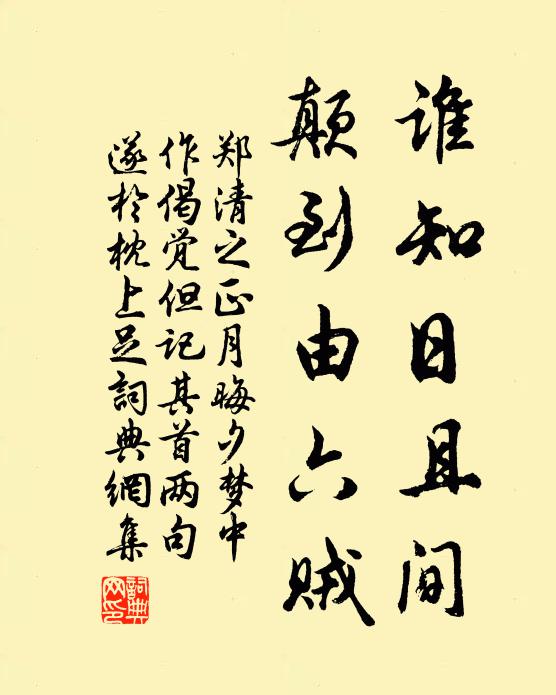 谁知日且间
颠到由六贼
郑清之正月晦夕梦中
作偈觉但记其首两句
遂於枕上足詞典網集
詞典
网印